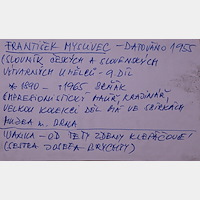 FRANTIŠEK MYSLIVEC - DATOVÁNO 1955
(SLOVNÍK ČESKÝCH A SLOVENSKÝCH
VÝTVARNÝCH UMĚLCŮ - 9. DÍL
* 1890 - †1965 BRŇÁK
IMPRESIONISTICKÝ MALÍŘ, KRAJINÁŘ,
VELKOU KOLEKCI DĚL MÁ VE SBÍRKÁCH
MUZEA M. BRNA
- OD TETY ZDENY KLEPÁČOVÉ!
(SESTRA JOSEFA BERCHTY)